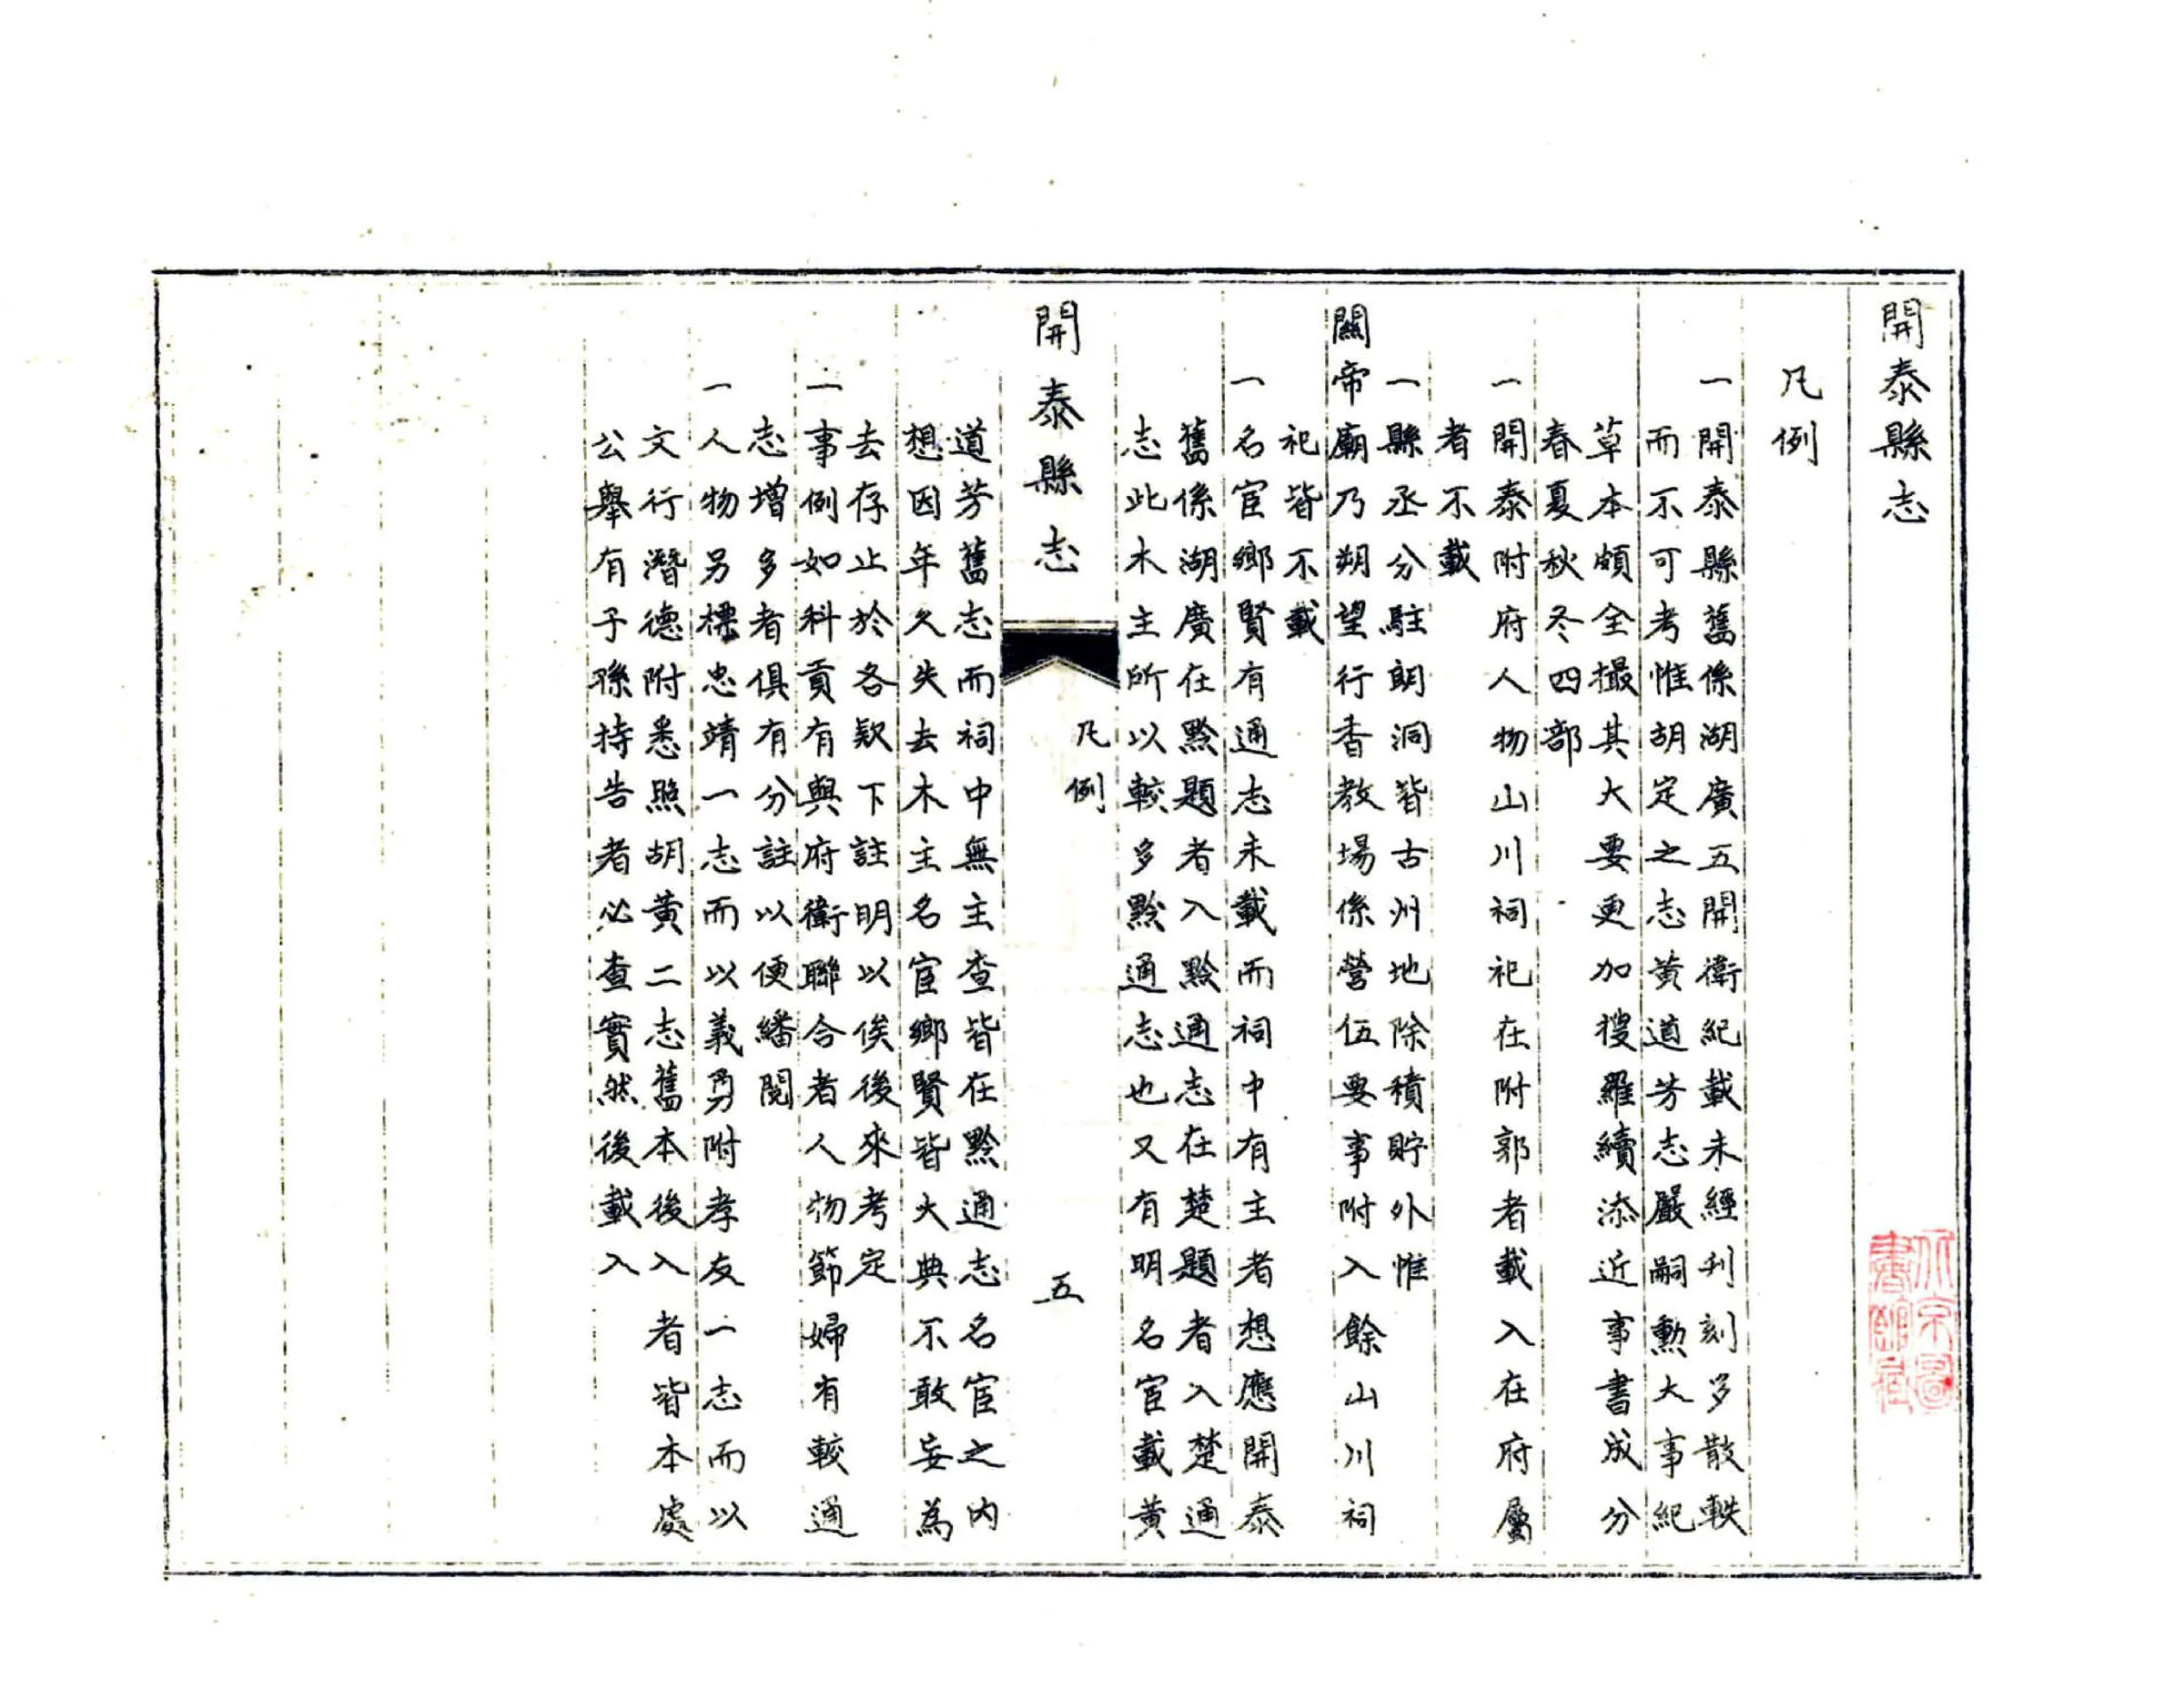 開泰縣志
凡例
一開泰縣舊係湖廣五開衛紀載未經刋刻多散軼
而不可考惟胡定之志黄道芳志嚴嗣勲大事紀
草本頗全撮其大要更加搜羅續添近事書成分
春夏秋冬四部
一開泰附府人物山川祠祀在附郭者載入在府屬
者不載
一縣丞分駐朗洞皆古州地除積貯外惟
關帝廟乃朔望行香教場係營伍要事附入餘山川祠
祀皆不載
一名宦鄉賢有通志未載而祠中有主者想應開泰
舊係湖廣在黔題者入黔通志在楚題者入楚通
志此木主所以較多黔通志也又有明名宦載黄
開泰縣志
凡例
五
道芳舊志而祠中無主查皆在黔通志名宦之内
想因年久失去木主名宦鄉賢皆大典不敢妄為
去存止於各欵下註明以俟後來考定
一事例如科貢有與府衛聯合者人物節婦有較通
志增多者俱有分註以便繙閲
一人物另標忠靖一志而以義勇附孝友一志而以
文行潛德附悉照胡黄二志舊本後入者皆本處
公舉有子孫持告者必查實然後載入
北京圖
書館藏